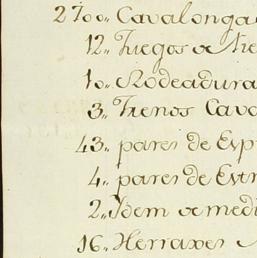 2700,, Cavalonga
12,, Juegos de
10,, Rodeadura
3,, Frenos Cava
43,, pares de Esp
4,, pares de Estr
2,, Idem de medi
16,, Herraxes